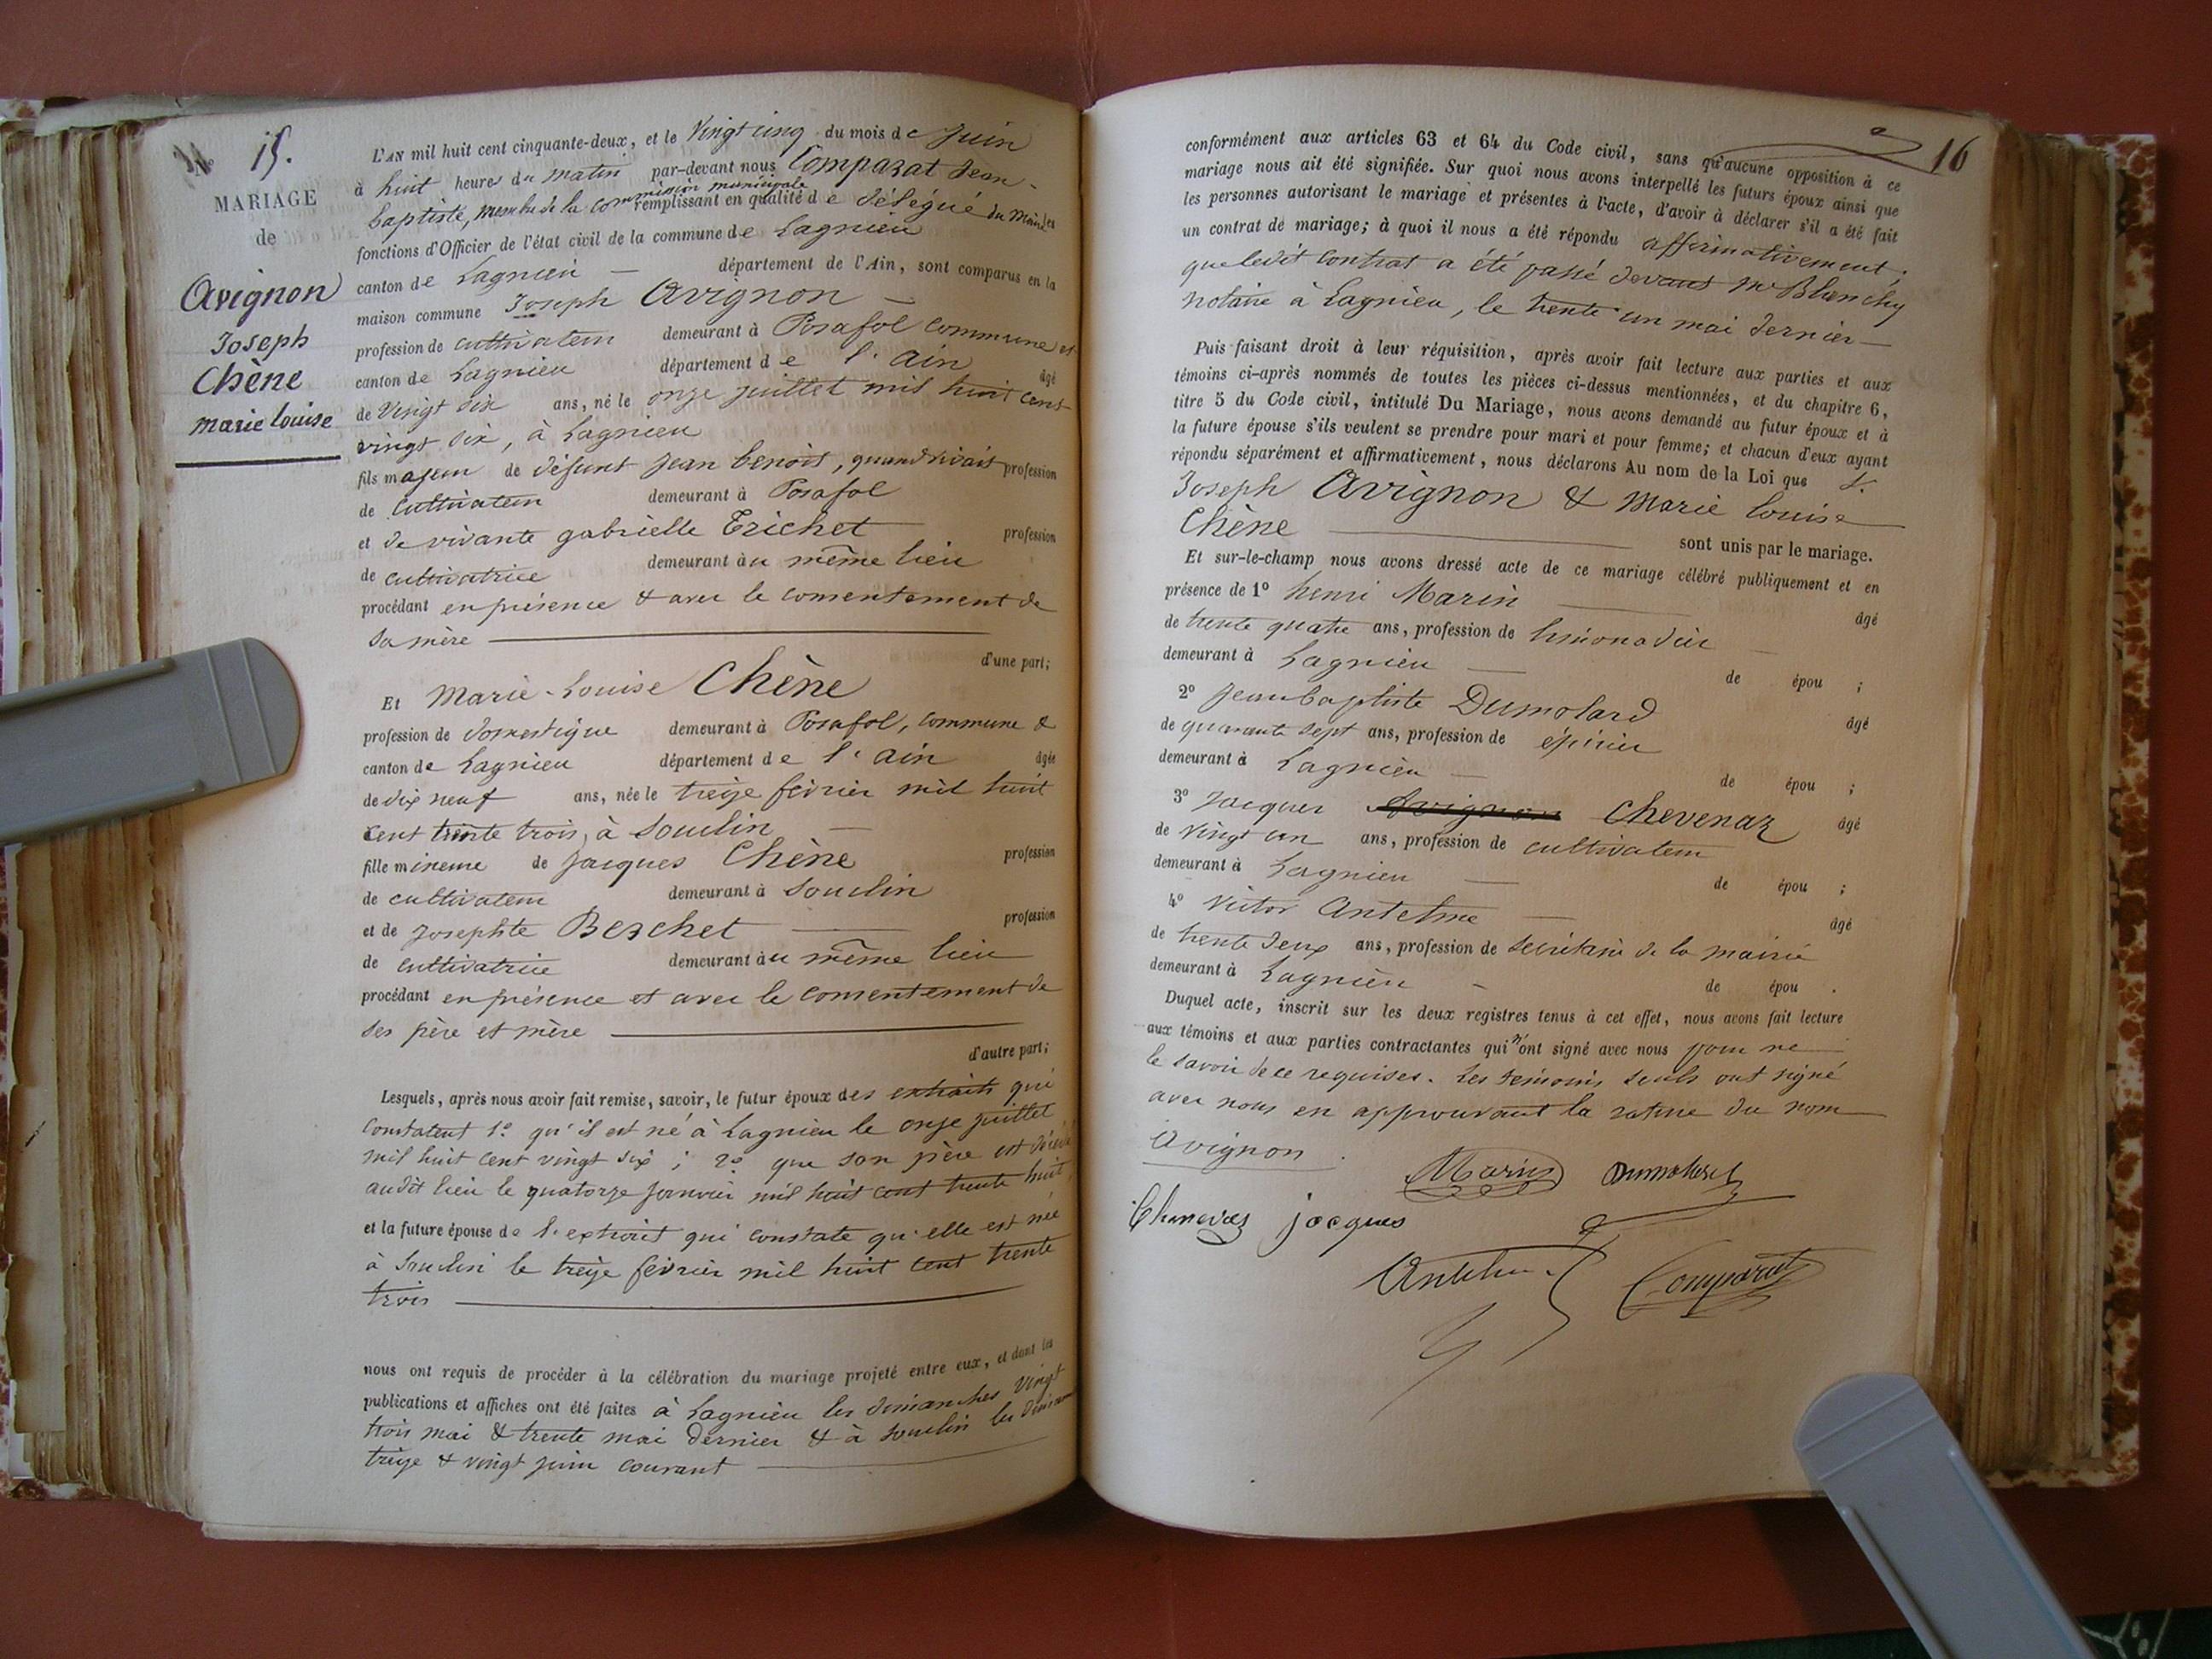 N° 15.
MARIAGE
de
Avignon
Joseph
Chène
marie louise
L'AN mil huit cent cinquante-deux, et le Vingt cinq du mois de Juin
à huit heures du matin par-devant nous Comparat Jean-
baptiste, membre de la commission municipale remplissant en qualité de délégué du Maire les
fonctions d'Officier de l'état civil de la commune de Lagnieu
canton de Lagnieu — département de l'Ain, sont comparus en la
maison commune Joseph Avignon —
profession de cultivateur demeurant à Posafol commune et
canton de Lagnieu département de l'ain âgé
de Vingt six ans, né le onze juillet mil huit cent
vingt six, à Lagnieu
fils majeur de défunt Jean benoit, quand vivait profession
de cultivateur demeurant à Posafol
et de vivante gabrielle Trichet profession
de cultivatrice demeurant au même lieu
procédant en présence & avec le consentement de
sa mère
d'une part;
Et Marie-Louise Chène
profession de domestique demeurant à Posafol, commune &
canton de Lagnieu département de l'ain âgée
de dix neuf ans, née le treize février mil huit
cent trente trois, à Souclin —
fille mineure de Jacques Chène profession
de cultivateur demeurant à Souclin
et de Josephte Berchet profession
de cultivatrice demeurant au même lieu
procédant en présence et avec le consentement de
ses père et mère
d'autre part;
Lesquels, après nous avoir fait remise, savoir, le futur époux des extraits qui
constatent 1° qu'il est né à Lagnieu le onze juillet
mil huit cent vingt six; 2° que son père est décédé
audit lieu le quatorze janvier mil huit cent trente huit
et la future épouse de l'extrait qui constate qu'elle est née
à Souclin le treize février mil huit cent trente
trois
nous ont requis de procéder à la célébration du mariage projeté entre eux, et dont les
publications et affiches ont été faites à Lagnieu les dimanches vingt
trois mai & trente mai dernier & à Souclin les
treize & vingt juin courant
16
conformément aux articles 63 et 64 du Code civil, sans qu'aucune opposition à ce
mariage nous ait été signifiée. Sur quoi nous avons interpellé les futurs époux ainsi que
les personnes autorisant le mariage et présentes à l'acte, d'avoir à déclarer s'il a été fait
un contrat de mariage; à quoi il nous a été répondu affirmativement;
que ledit contrat a été passé devant Me Blanchy
notaire à Lagnieu, le trente un mai dernier —
Puis faisant droit à leur réquisition, après avoir fait lecture aux parties et aux
témoins ci-après nommés de toutes les pièces ci-dessus mentionnées, et du chapitre 6,
titre 5 du Code civil, intitulé Du Mariage, nous avons demandé au futur époux et à
la future épouse s'ils veulent se prendre pour mari et pour femme; et chacun d'eux ayant
répondu séparément et affirmativement, nous déclarons Au nom de la Loi que
Joseph Avignon & Marie Louise
Chène sont unis par le mariage.
Et sur-le-champ nous avons dressé acte de ce mariage célébré publiquement et en
présence de 1° henri Marin âgé
de trente quatre ans, profession de limonadier
demeurant à Lagnieu — de épou ;
2° Jean baptiste Dumolard âgé
de quarante sept ans, profession de épicier
demeurant à Lagnieu — de épou ;
3° Jacques Avignon Chevenaz âgé
de vingt un ans, profession de cultivateur
demeurant à Lagnieu — de épou ;
4° Victor Antelme — âgé
de trente deux ans, profession de secrétaire de la mairie
demeurant à Lagnieu - de épou .
Duquel acte, inscrit sur les deux registres tenus à cet effet, nous avons fait lecture
aux témoins et aux parties contractantes qui n'ont signé avec nous pour ne
le savoir de ce requises. Les témoins seuls ont signé
avec nous en approuvant la rature du nom
Avignon.
Marin Dumolard
Chenevaz jacques
Antelme Comparat